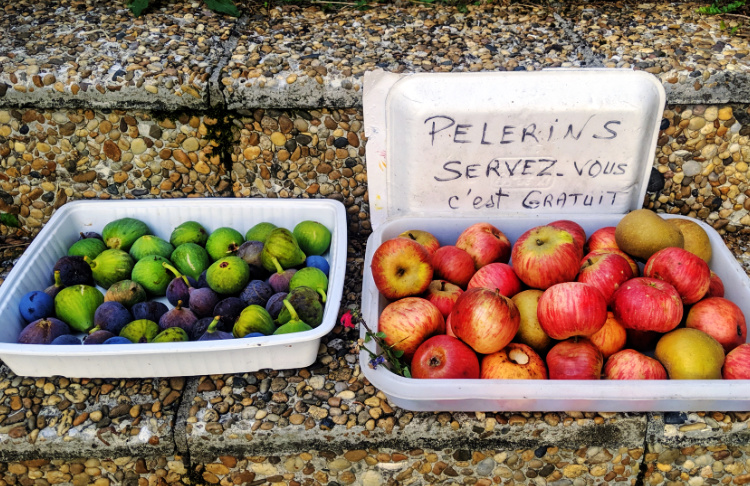 PELERINS
SERVEZ-VOUS
c'est GRATUIT